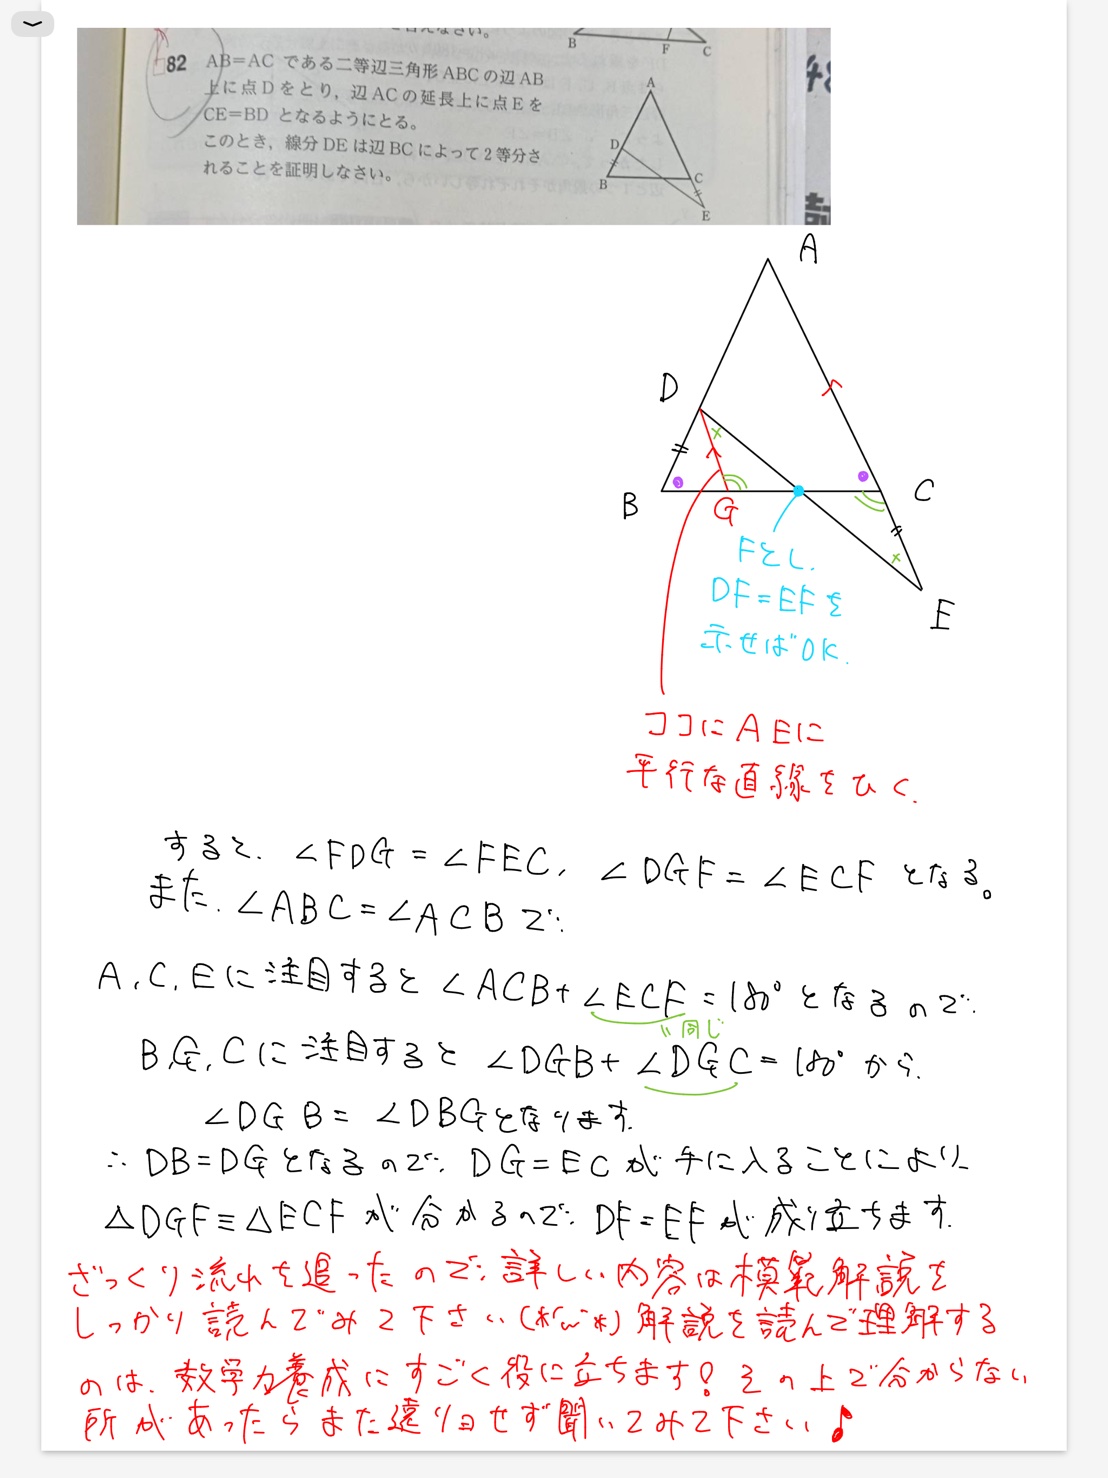 B F C
82 AB=AC である二等辺三角形 ABC の辺 AB
上に点 D をとり，辺 AC の延長上に点 E を
CE=BD となるようにとる。
このとき，線分 DE は辺 BC によって 2 等分さ
れることを証明しなさい。
A
D
B
C
E
A
D
B
G
C
E
Fとし、
DF=EFを
示せばOK.
ココにAEに
平行な直線をひく。
すると、∠FDG=∠FEC、∠DGF=∠ECFとなる。
また、∠ABC=∠ACBで、
A,C,Eに注目すると∠ACB+∠ECF=180°となるので、
〃同じ
B,G,Cに注目すると∠DGB+∠DGC=180°から、
∠DGB=∠DBGとなります。
∴DB=DGとなるので、DG=ECが手に入ることにより、
△DGF≡△ECFが分かるので、DF=EFが成り立ちます。
ざっくり流れを追ったので、詳しい内容は模範解説を
しっかり読んでみて下さい(*'ω'*)解説を読んで理解する
のは、数学力養成にすごく役に立ちます!その上で分からない
所があったらまた遠り日せず聞いてみて下さい♪